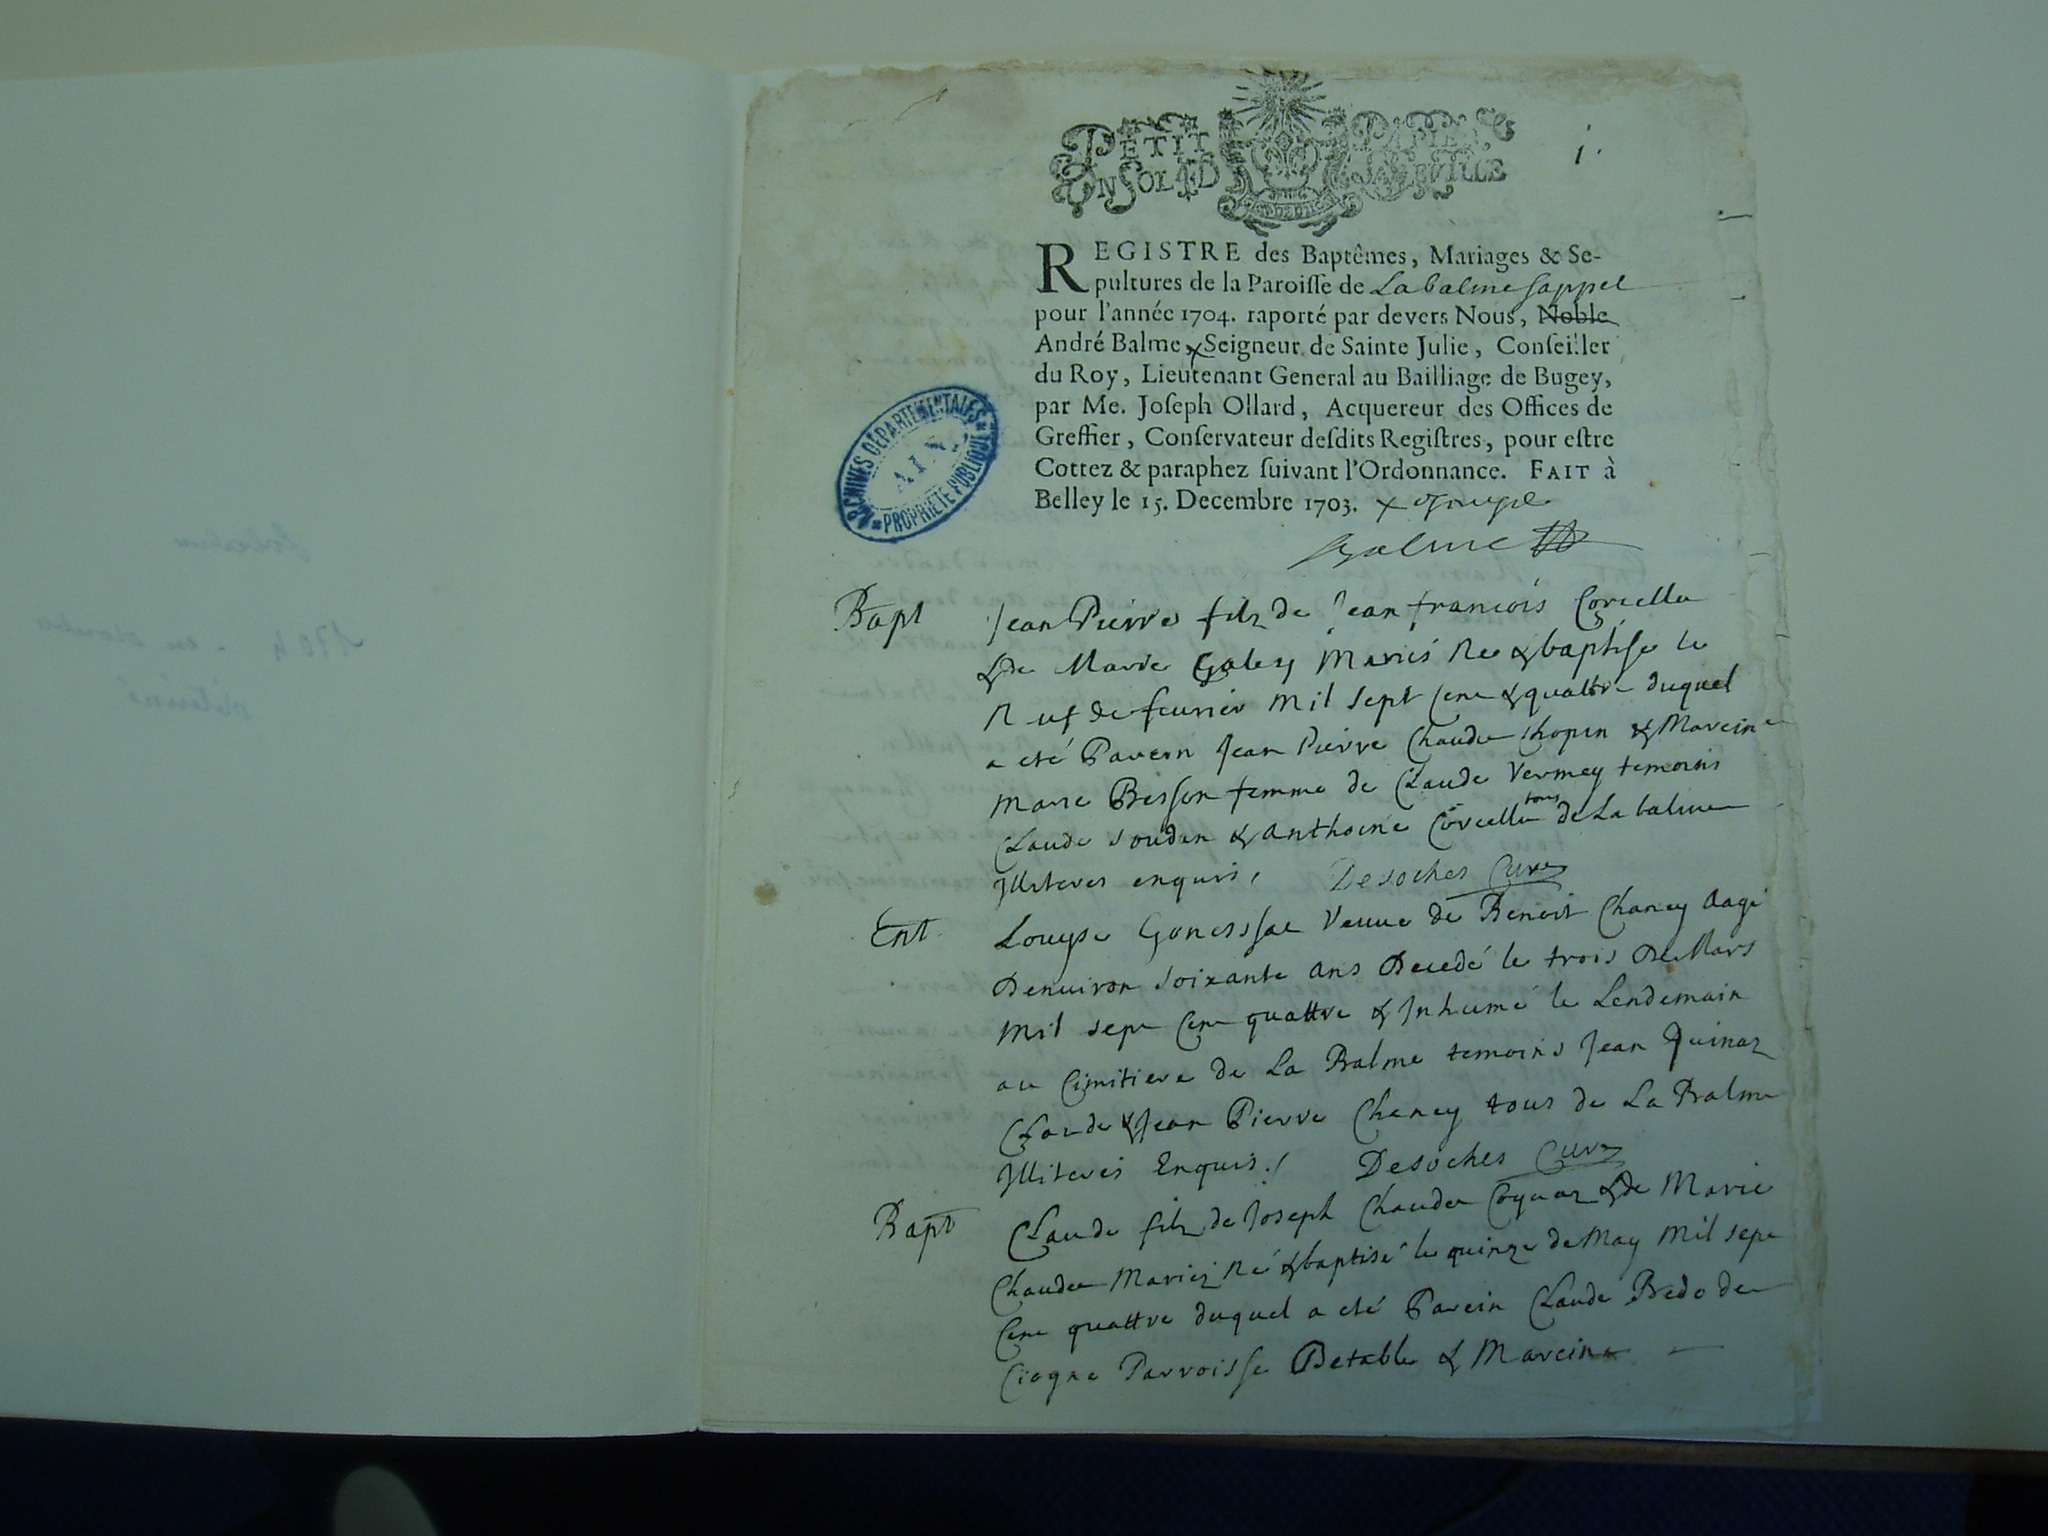 PETIT PAPIER
UN SOL 4D LA FEUILLE
1.
REGISTRE des Baptêmes, Mariages & Se-
pultures de la Paroisse de La balme sappel
pour l'année 1704. raporté par devers Nous, Noble
André Balme x Seigneur de Sainte Julie, Conseiller
du Roy, Lieutenant General au Bailliage de Bugey,
par Me. Joseph Ollard, Acquereur des Offices de
Greffier, Conservateur desdits Registres, pour estre
Cottez & paraphez suivant l'Ordonnance. FAIT à
Belley le 15. Decembre 1703. x
Balme
ARCHIVES DÉPARTEMENTALES
AIN
PROPRIÉTÉ PUBLIQUE
Bapt Jean Pierre filz de Jean francois Corcellu
& de Marie Galey Mariés Ne & baptise le
Neuf de feurier Mil sept Cent & quattre duquel
a eté Parein Jean Pierre Chaudu Chopin & Mareine
Marie Besson femme de Claude Vermey temoins
Claude Soudan & Anthoine Corcellu tous de La balme
Illiteres enquis, Desoches Curé
Ent. Louyse Gonessac Veuue de Benoit Chaney Aagé
Denuiron soixante ans Decedé le trois De Mars
Mil sept Cent quattre & Inhumé le Lendemain
au Cimitiere de La Balme temoins Jean Quinaz
Claude & Jean Pierre Chaney tous de La Balme
Illiterés Enquis./ Desoches Curé
Bapt Claude filz de Joseph Chaudu Coynaz & de Marie
Chaudu Mariez Né & baptisé le quinze de May Mil sept
Cent quattre duquel a eté Parein Claude Bedo de
Ciogne Parroisse Detable & Mareine